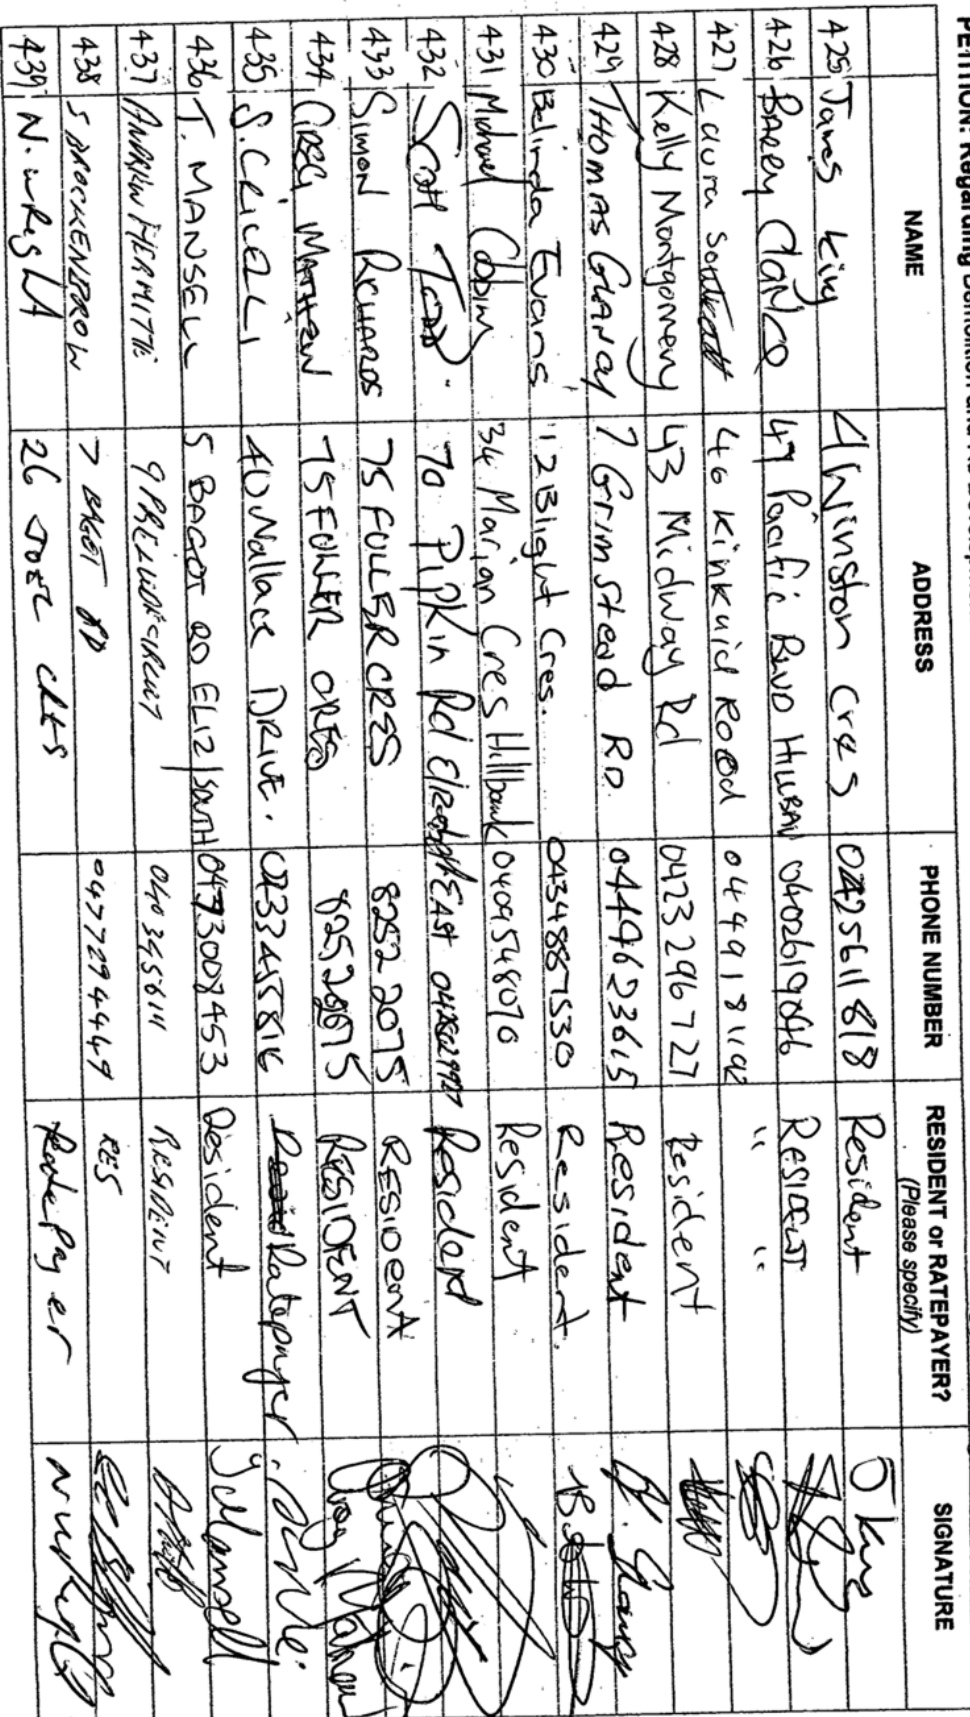 PETITION: Regarding
NAME ADDRESS PHONE NUMBER RESIDENT or RATEPAYER? (Please specify) SIGNATURE
425 James King 4 Winston Cres 0425611818 Resident
426 BARRY 47 Pacific BLVD HILLBAN 0402619046 RESIDENT
427 Laura 46 Kinkaid Road 0449181192 " "
428 Kelly Montgomery 43 Midway Rd 0423296727 Resident
429 THOMAS GLANCY 7 Grimstead RD. 0449623615 Resident
430 Belinda Evans 12 Blight Cres. 0434887530 Resident.
431 Michael 34 Marian Cres Hillbank 0409548070 Resident
432 Scott TODD. 70 Pipkin Rd EAST Resident
433 SIMON RICHARDS 75 FULLER CRES 8252 2075 RESIDENT
434 GREG MATHEW 75 FOWLER CRES RESIDENT
435 S. CRIVELLI 40 Wallace DRIVE. Ratepayer
436 T. MANSELL 5 BAGOT RD ELIZ/SOUTH 0473008453 Resident
437 ANDREW HERMITTE 9 PRELUDE CIRCUIT RESIDENT
438 S BROCKENBROW 7 BAGOT RD 0477294449 RES
439 N. WRIGHT 26 Ratepayer